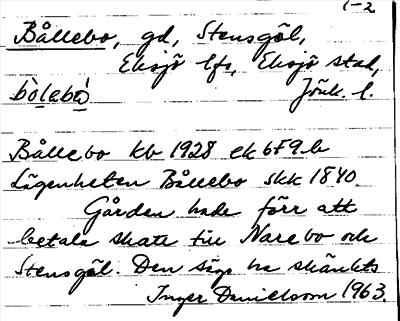 1-2
Bållebo, gd, Stensgöl,
Eksjö lfs, Eksjö stad,
bòlebó Jönk. l.
Bållebo kb 1928 ek 6F9.b
Lägenheten Bållebo skk 1840.
Gården hade förr att
betala skatt till Narebo och
Stensgöl. Den sägs ha skänkts
Inger Danielsson 1963.